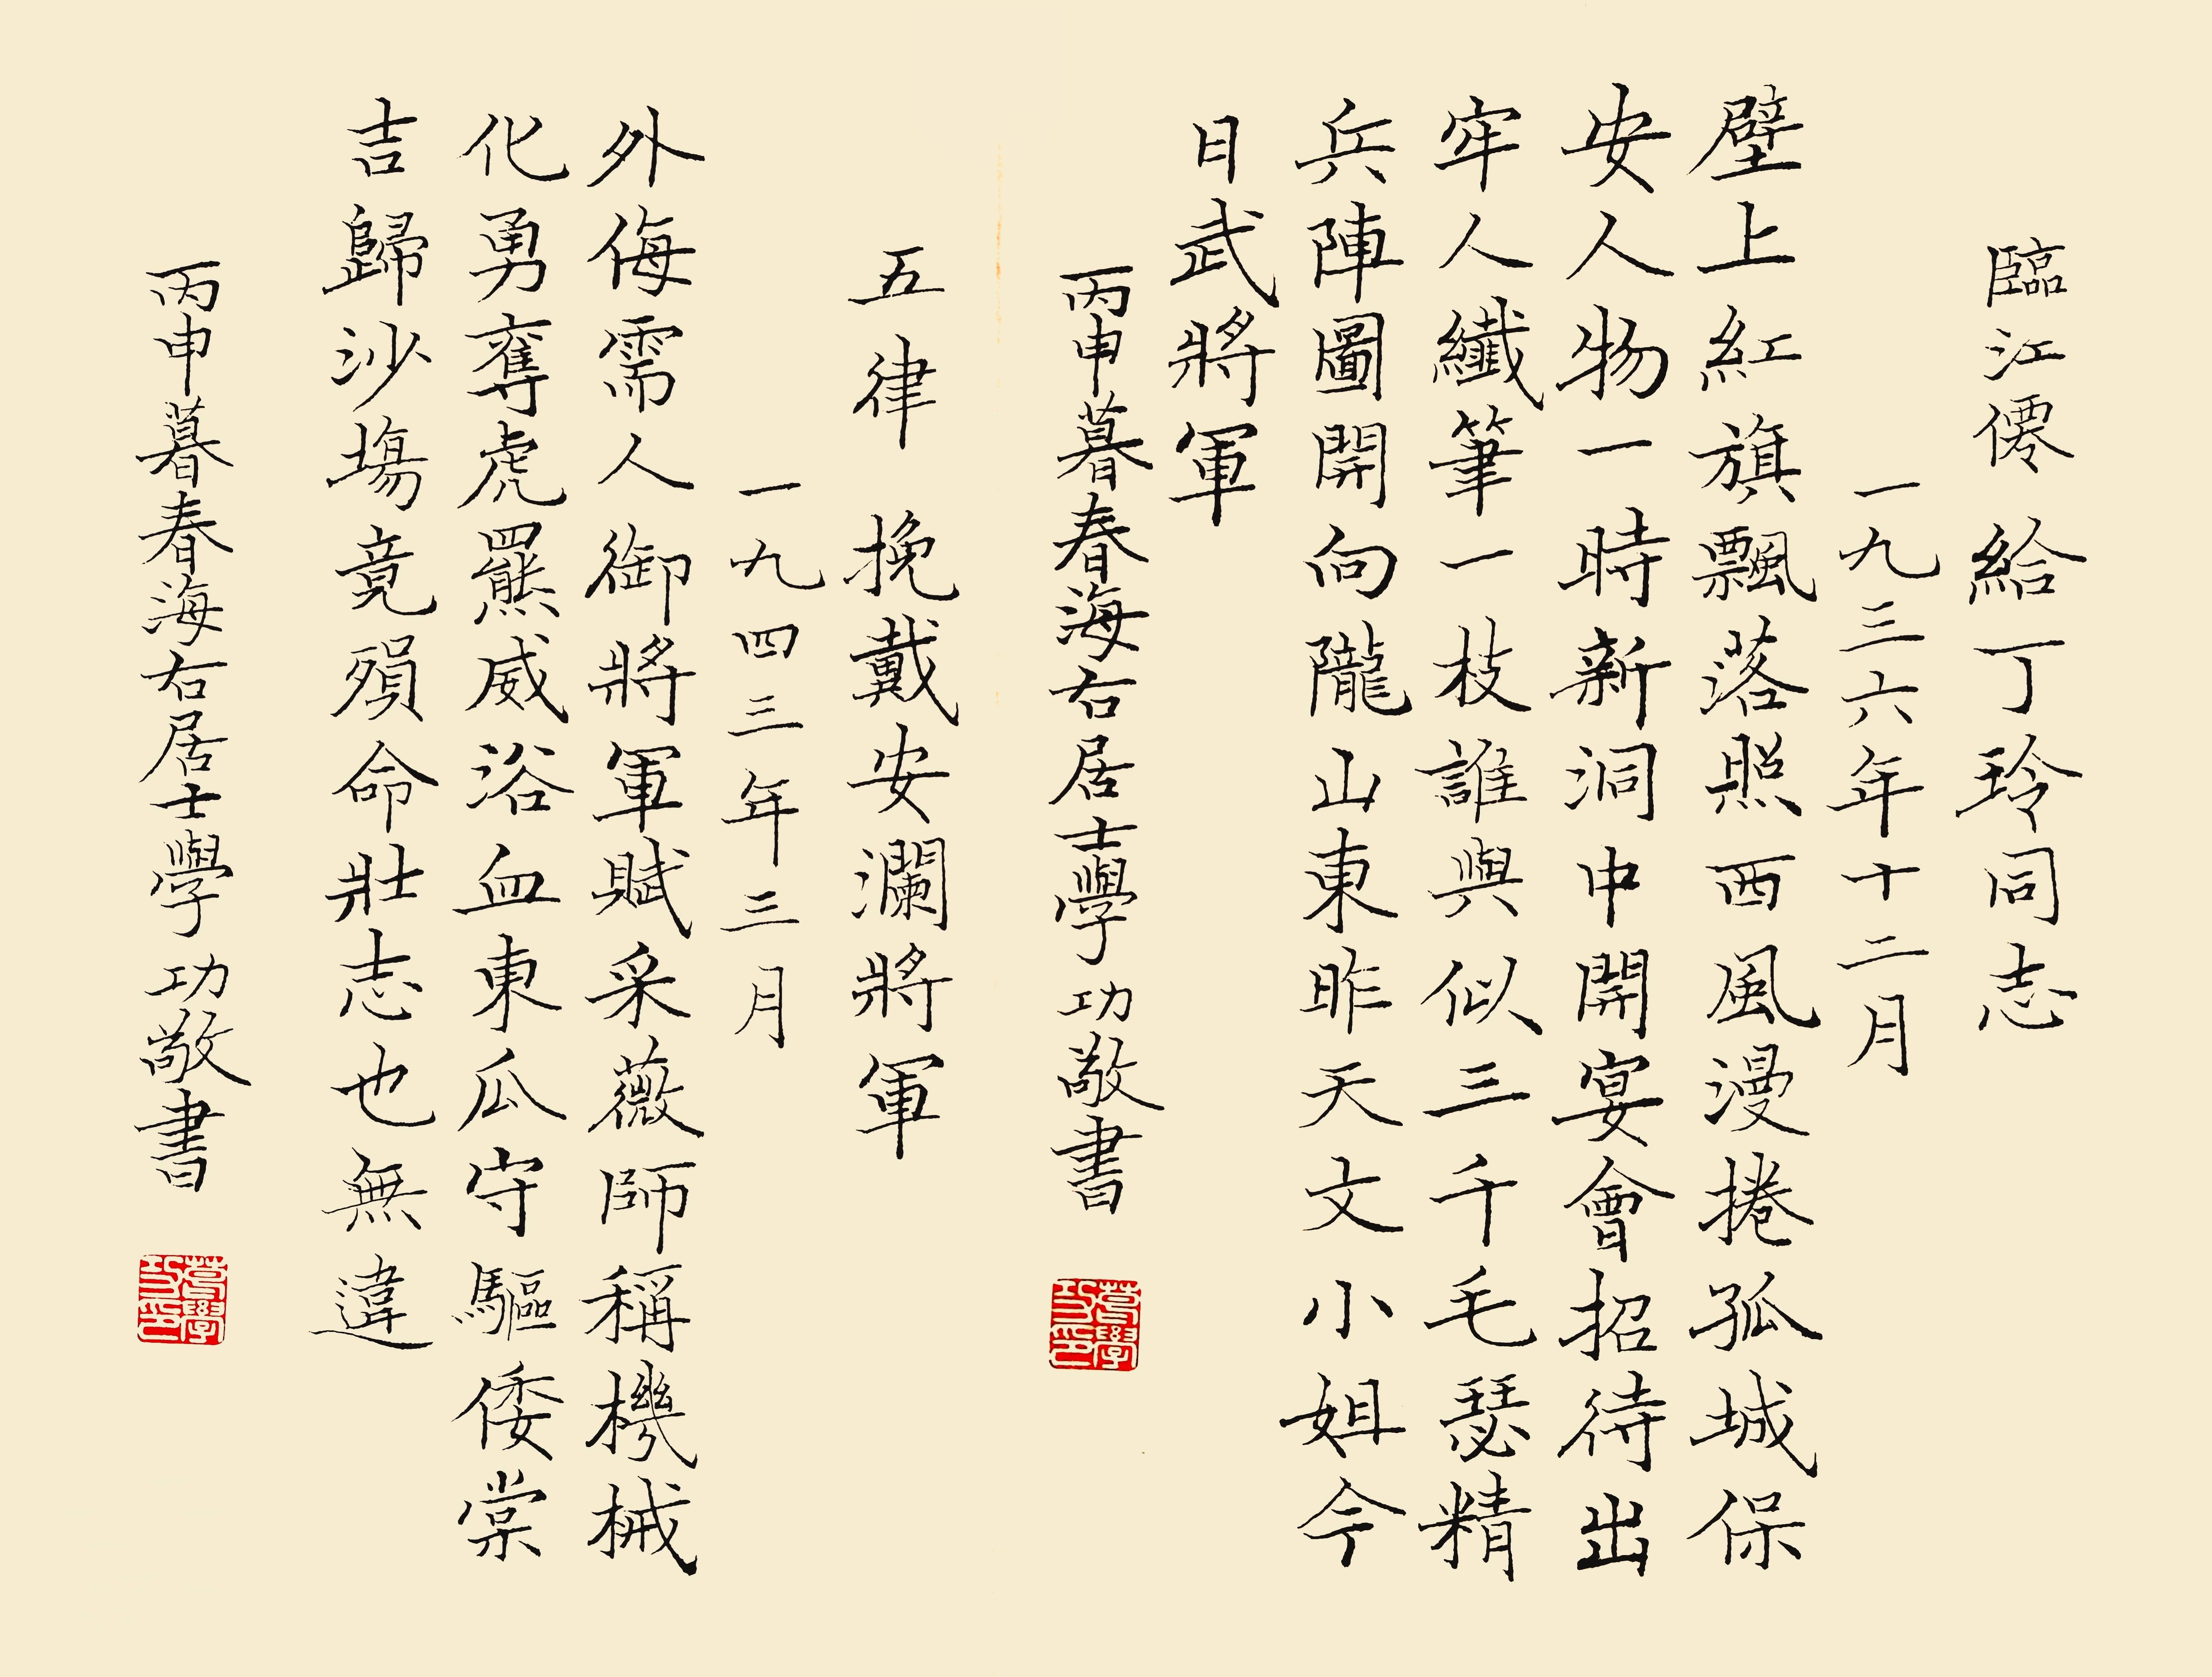 臨江僊 給丁玲同志
一九三六年十二月
壁上紅旗飄落照西風漫捲孤城保
安人物一時新洞中開宴會招待出
牢人纖筆一枝誰與似三千毛瑟精
兵陣圖開向隴山東昨天文小姐今
日武將軍
丙申暮春海右居士學功敬書
葛學功印
五律 挽戴安瀾將軍
一九四三年三月
外侮需人御將軍賦采薇師稱機械
化勇奪虎羆威浴血東瓜守驅倭棠
吉歸沙場竟殞命壯志也無違
丙申暮春海右居士學功敬書
葛學功印